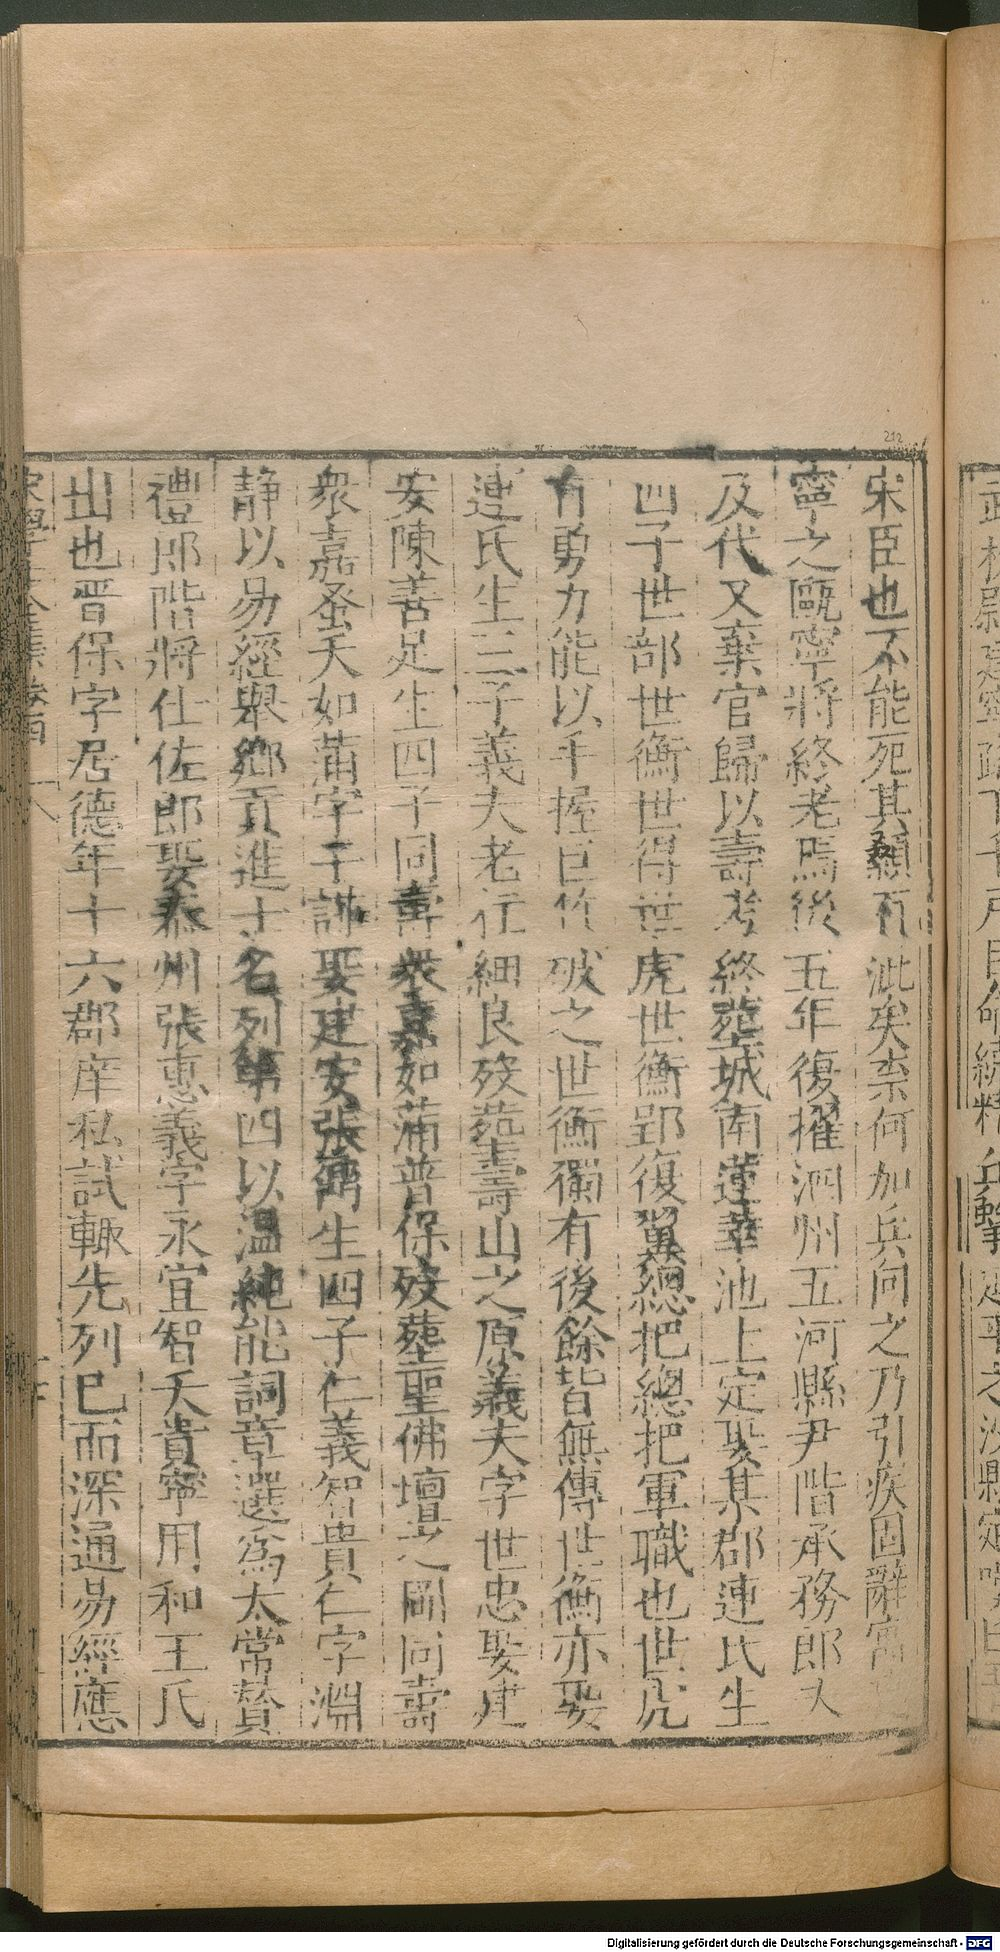 宋臣也不能死其顙有泚矣柰何加兵向之乃引疾固辭
寧之甌寧將終老焉後五年復擢泗州五河縣尹階承務郎又
及代又棄官歸以壽考終塟城南蓮華池上定娶某郡連氏生
四子世部世衡世得世虎世衡郢復翼總把總把軍職也世虎
有勇力能以手握巨竹破之世衡獨有後餘皆無傳世衡亦娶
連氏生三子義夫老任細良歿塟壽山之原義夫字世忠娶建
安陳善足生四子同壽衆嘉如蒲普保歿塟聖佛壇之岡同壽
衆嘉蚤夭如蒲字子謀娶建安張生四子仁義智貴仁字淵
静以易經舉鄉貢進士名列第四以温純能詞章選爲太常贊
禮郎階將仕佐郎娶泰州張惠義字永宜智夭貴寧用和王氏
出也晋保字君德年十六郡庠私試輙先列巳而深通易經應
宋學士全集卷
武校尉
兵擊
延平之沙縣
212
Digitalisierung gefördert durch die Deutsche Forschungsgemeinschaft - DFG